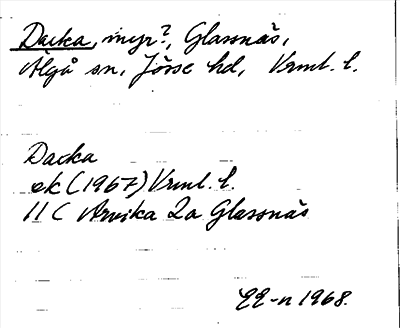 Dacka, myr?, Glassnäs,
Älgå sn, Jösse hd, Vrml. l.
Dacka
ek (1967) Vrml. l.
11 C Arvika 2a Glassnäs
EE-n 1968.